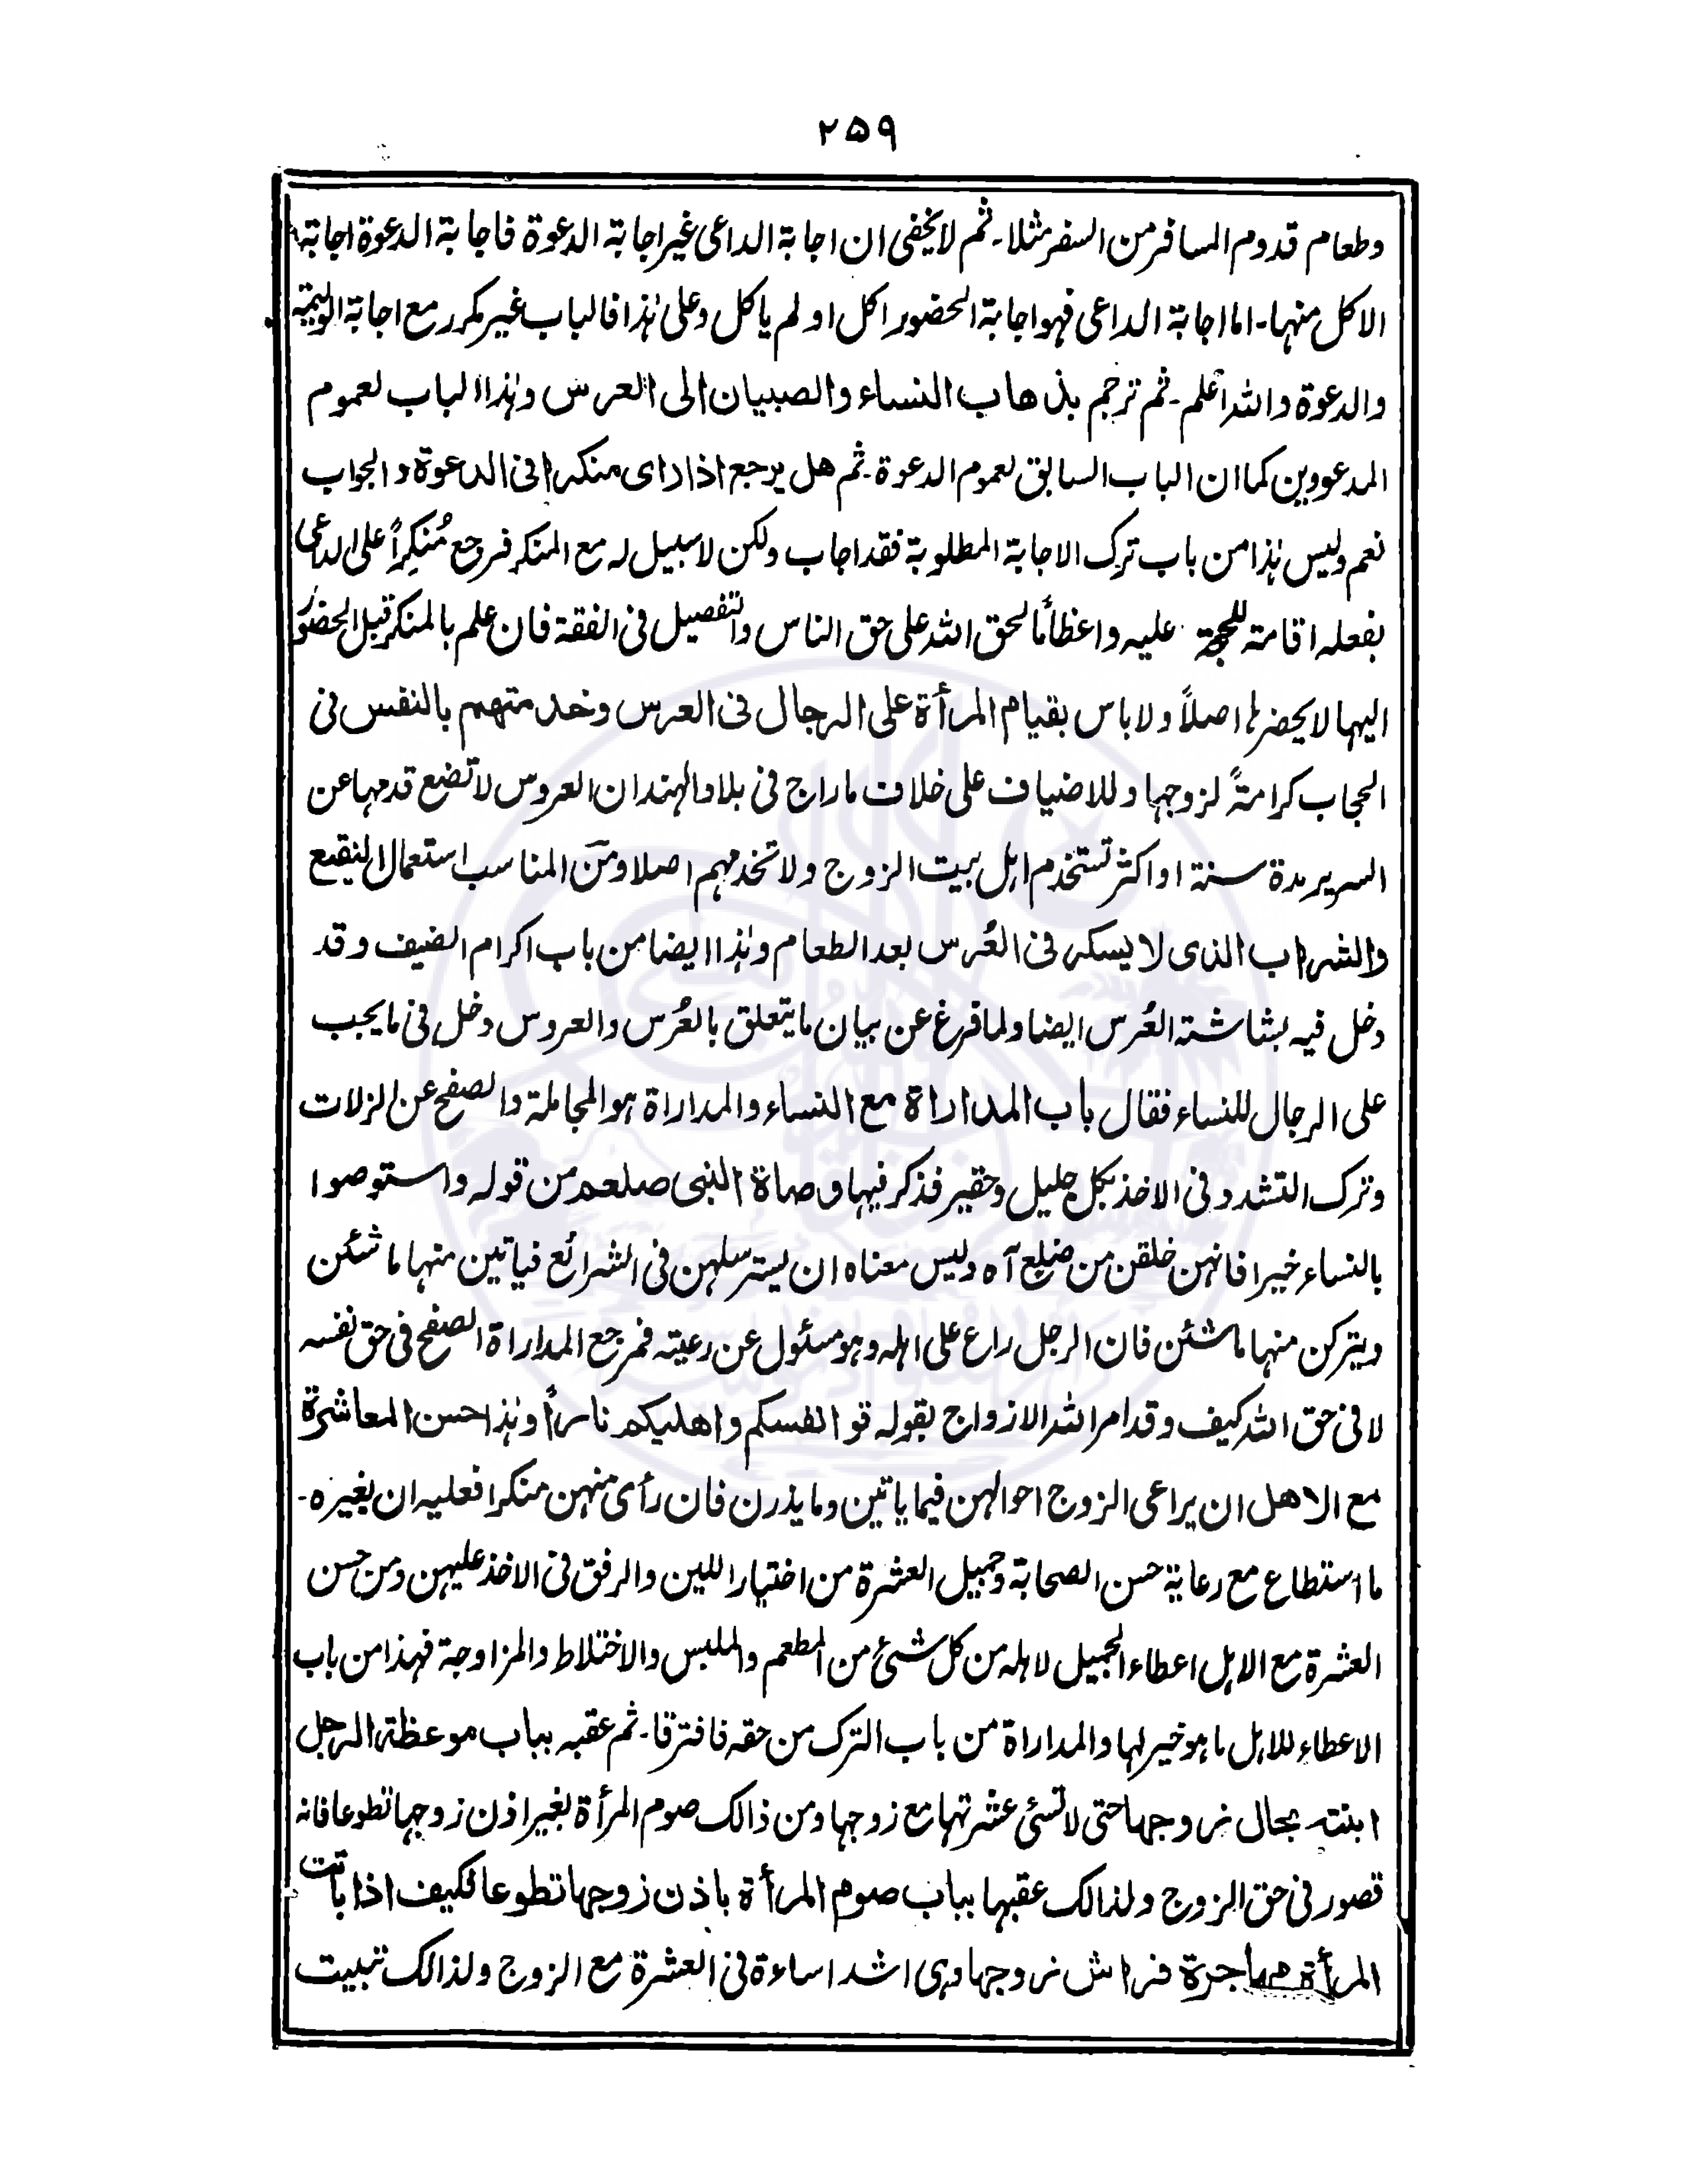 ۲۵۹
وطعام قدوم المسافر من السفر مثلا۔ ثم لا يخفى ان اجابة الداعى غير اجابة الدعوة فاجابة الدعوة اجابة
الاكل منها۔ اما اجابة الداعى فهو اجابة الحضور اكل او لم ياكل وعلى هٰذا فالباب غير مكرر مع اجابة الوليمة
والدعوة والله اعلم۔ ثم ترجم بذهاب النساء والصبيان الى العرس وهٰذا الباب لعموم
المدعووين كما ان الباب السابق لعموم الدعوة۔ ثم هل يرجع اذا راى منكرا فى الدعوة والجواب
نعم وليس هٰذا من باب ترك الاجابة المطلوبة فقد اجاب ولكن لا سبيل له مع المنكر فرجع مُنكِراً على الداعى
بفعله اقامة للحجة عليه واعظاًما لحق الله على حق الناس والتفصيل فى الفقة فان علم بالمنكر قبل الحضور
اليها لا يحضرها اصلاً ولا باس بقيام المرأة على الرجال فى العرس وخدمتهم بالنفس فى
الحجاب كرامةً لزوجها وللاضياف على خلاف ماراج فى بلاد الهند ان العروس لا تضع قدمها عن
السرير مدة سنة او اكثر تستخدم اهل بيت الزوج ولا تخدمهم اصلا ومن المناسب استعمال النقيع
والشراب الذى لا يسكر فى العُرس بعد الطعام وهٰذا ايضا من باب اكرام الضيف وقد
دخل فيه بشاشة العُرس ايضا ولما فرغ عن بيان ما يتعلق بالعُرس والعروس دخل فى ما يجب
على الرجال للنساء فقال باب المداراة مع النساء والمداراة هو المجاملة والصفح عن الزلات
وترك التشدد فى الاخذ بكل جليل وحقير فذكر فيها وصاة النبى صلعم من قوله واستوصوا
بالنساء خيرا فانهن خلقن من ضلع آه وليس معناه ان يسترسلهن فى الشرائع فياتين منها ما شئن
ويتركن منها ما شئن فان الرجل راع على اهله وهو مسئول عن رعيته فمرجع المداراة الصفح فى حق نفسه
لا فى حق الله كيف وقد امر الله الازواج بقوله قو انفسكم واهليكم ناراً وهٰذا حسن المعاشرة
مع الاهل ان يراعى الزوج احوالهن فيما ياتين وما يذرن فان رأى منهن منكرا فعليه ان يغيره۔
ما استطاع مع رعاية حسن الصحابة وجميل العشرة من اختيار اللين والرفق فى الاخذ عليهن ومن حسن
العشرة مع الاهل اعطاء الجميل لاهله من كل شئ من المطعم والملبس والاختلاط والمزاوجة فهذا من باب
الاعطاء للاهل ما هو خير لها والمداراة من باب الترك من حقه فافترقا۔ ثم عقبه بباب موعظة الرجل
ابنته بحال زوجها حتى لا تسئ عشرتها مع زوجها ومن ذالك صوم المرأة بغير اذن زوجها تطوعا فانه
قصور فى حق الزوج ولذالك عقبها بباب صوم المرأة باذن زوجها تطوعا فكيف اذا باتت
المرأة مهاجرة فراش زوجها وهى اشد اساءة فى العشرة مع الزوج ولذالك تبيت